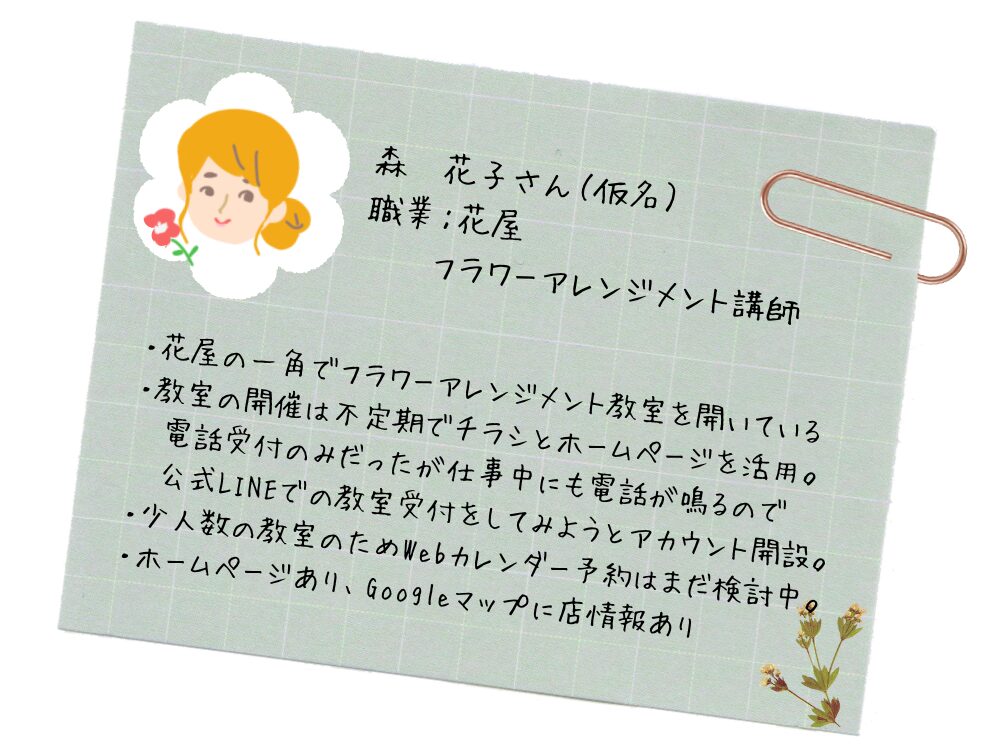 森　花子さん(仮名)
職業;花屋
フラワーアレンジメント講師
・花屋の一角でフラワーアレンジメント教室を開いている
・教室の開催は不定期でチラシとホームページを活用。
電話受付のみだったが仕事中にも電話が鳴るので
公式LINEでの教室受付をしてみようとアカウント開設。
・少人数の教室のためWebカレンダー予約はまだ検討中。
・ホームページあり、Googleマップに店情報あり